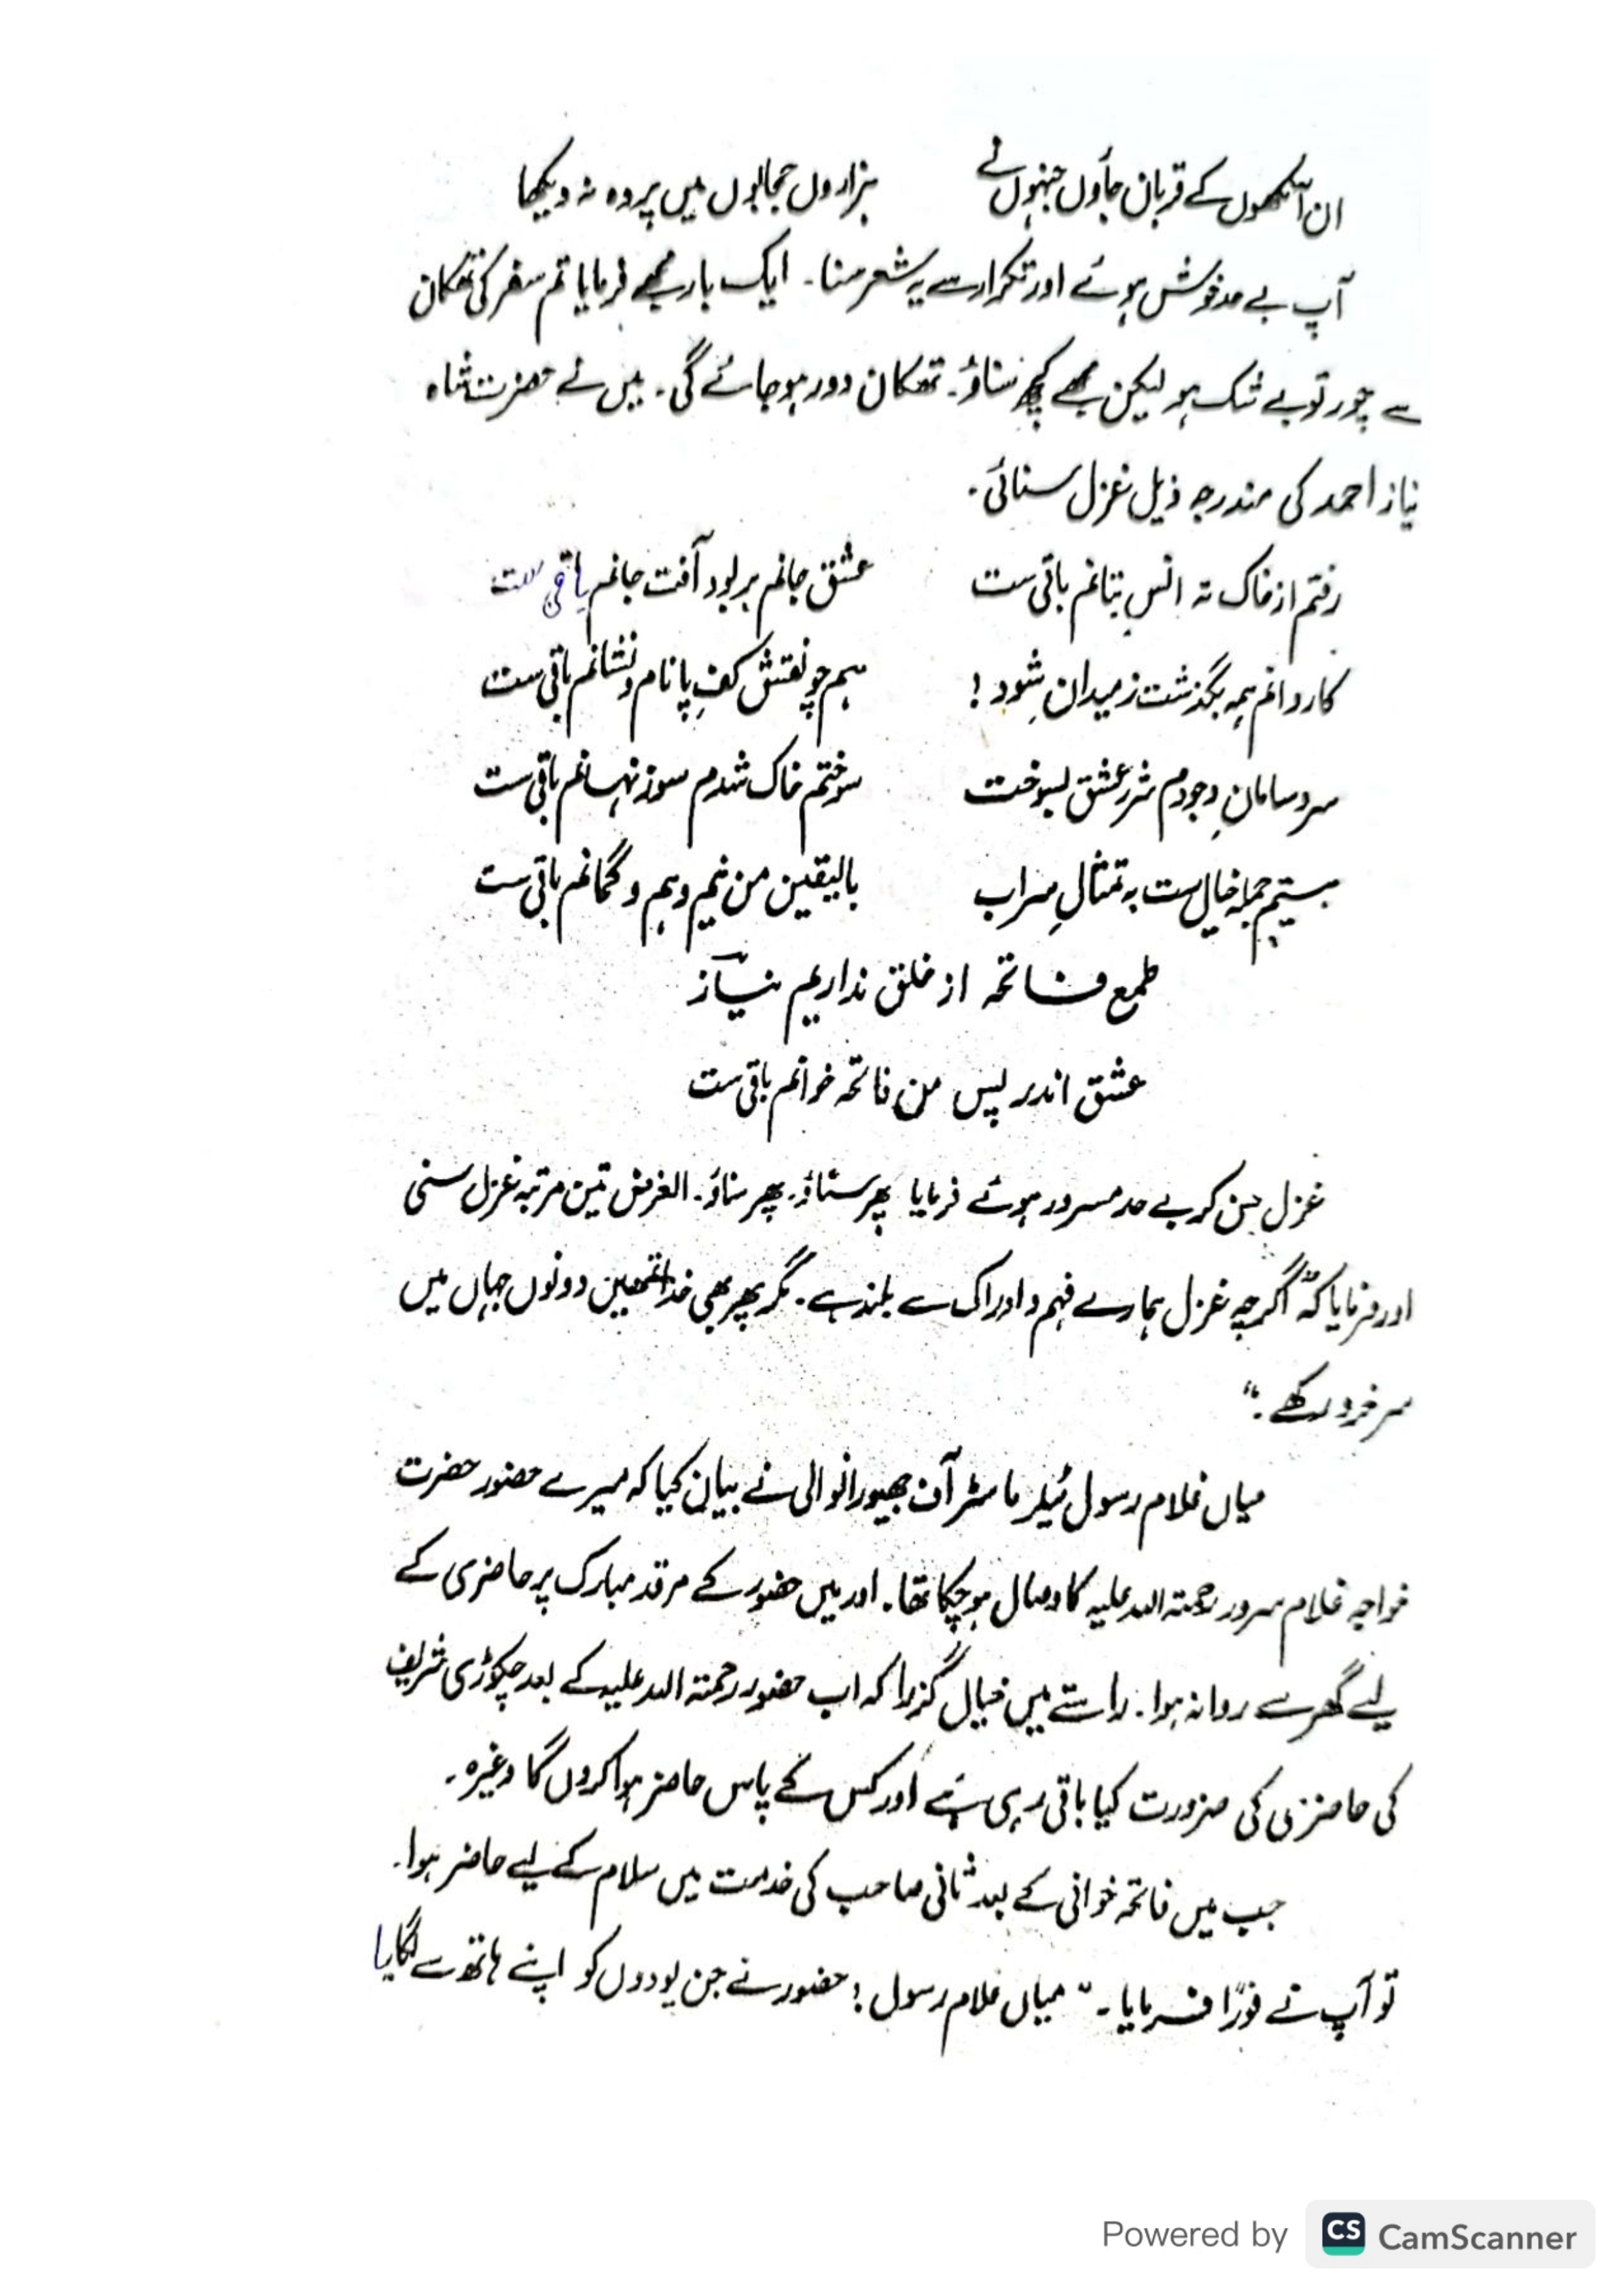 ان آنکھوں کے قربان جاؤں جنہوں نے ہزاروں حجابوں میں پردہ نہ دیکھا
آپ بے حد خوش ہوئے اور تکرار سے یہ شعر سنا۔ ایک بار مجھے فرمایا تم سفر کی تھکان
سے چور تو بے شک ہو لیکن مجھے کچھ سناؤ۔ تھکان دور ہو جائے گی۔ میں نے حضرت شاہ
نیاز احمد کی مندرجہ ذیل غزل سنائی۔
رفتم از خاک نہ انس بتانم باقی ست عشق جانم بربود آفت جانم باقی ست
کاروانم ہمہ بگذشت ز میدانِ شود ! ہم چو نقش کفِ پا نام و نشانم باقی ست
سر و سامانِ وجودم شررِ عشق بسوخت سوختم خاک شدم سوز نہانم باقی ست
ہستیم جملہ خیال ست بہ تمثالِ سراب بالیقین من نیم و ہم و گمانم باقی ست
طمع فاتحہ از خلق نداریم نیاز
عشق اندر پس من فاتحہ خوانم باقی ست
غزل سن کر بے حد مسرور ہوئے فرمایا پھر سناؤ۔ پھر سناؤ۔ الغرض تین مرتبہ غزل سنی
اور فرمایا کہ "اگرچہ غزل ہمارے فہم و ادراک سے بلند ہے۔ مگر پھر بھی خدا تمھیں دونوں جہاں میں
سرخرو رکھے۔"
میاں غلام رسول ٹیلر ماسٹر آف بھیورانوالی نے بیان کیا کہ میرے حضور حضرت
خواجہ غلام سرور رحمتہ اللہ علیہ کا وصال ہو چکا تھا۔ اور میں حضور کے مرقد مبارک پر حاضری کے
لیے گھر سے روانہ ہوا۔ راستے میں خیال گزرا کہ اب حضور رحمتہ اللہ علیہ کے بعد چکوڑی شریف
کی حاضری کی ضرورت کیا باقی رہی ہے اور کس کے پاس حاضر ہوا کروں گا وغیرہ۔
جب میں فاتحہ خوانی کے بعد ثانی صاحب کی خدمت میں سلام کے لیے حاضر ہوا۔
تو آپ نے فوراً فرمایا۔ "میاں غلام رسول ! حضور نے جن پودوں کو اپنے ہاتھ سے لگایا
Powered by CS CamScanner